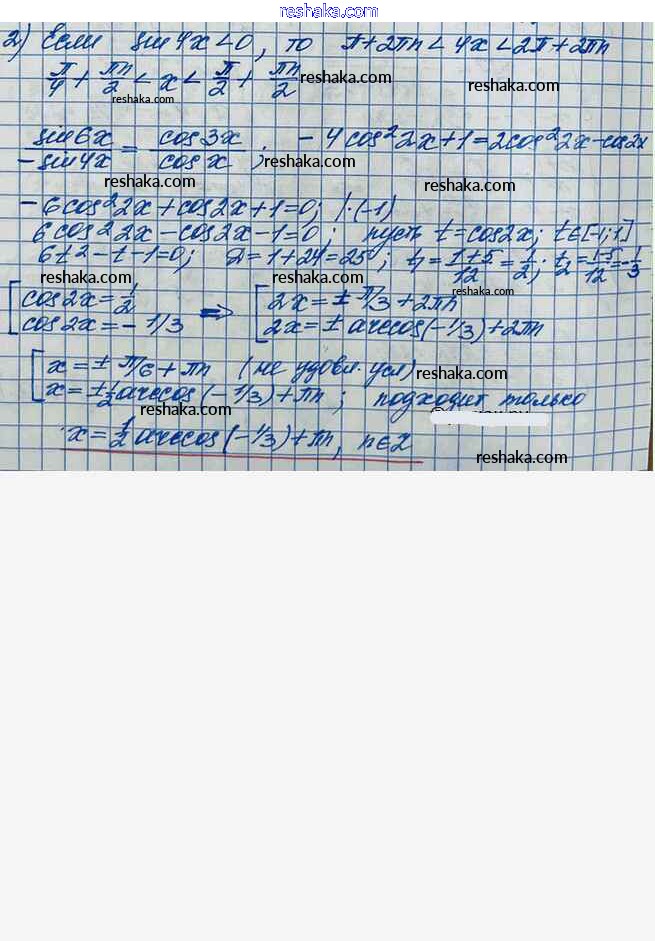 reshaka.com
2) Если sin 4x < 0, то π + 2πn < 4x < 2π + 2πn
π/4 + πn/2 < x < π/2 + πn/2 reshaka.com
reshaka.com
sin 6x / -sin 4x = cos 3x / cos x ; -4cos²2x + 1 = 2cos²2x - cos 2x
reshaka.com
reshaka.com reshaka.com
-6cos²2x + cos 2x + 1 = 0; | · (-1)
6cos²2x - cos 2x - 1 = 0; пусть t = cos 2x; t ∈ [-1; 1]
6t² - t - 1 = 0; D = 1 + 24 = 25; t₁ = (1+5)/12 = 1/2; t₂ = (1-5)/12 = -1/3
reshaka.com
[ cos 2x = 1/2 ⇒ [ 2x = ± π/3 + 2πn
cos 2x = -1/3 2x = ± arccos(-1/3) + 2πn
[ x = ± π/6 + πn (не удовл. усл) reshaka.com
x = ± 1/2 arccos(-1/3) + πn; подходит только
reshaka.com
x = 1/2 arccos(-1/3) + πn, n ∈ Z
reshaka.com